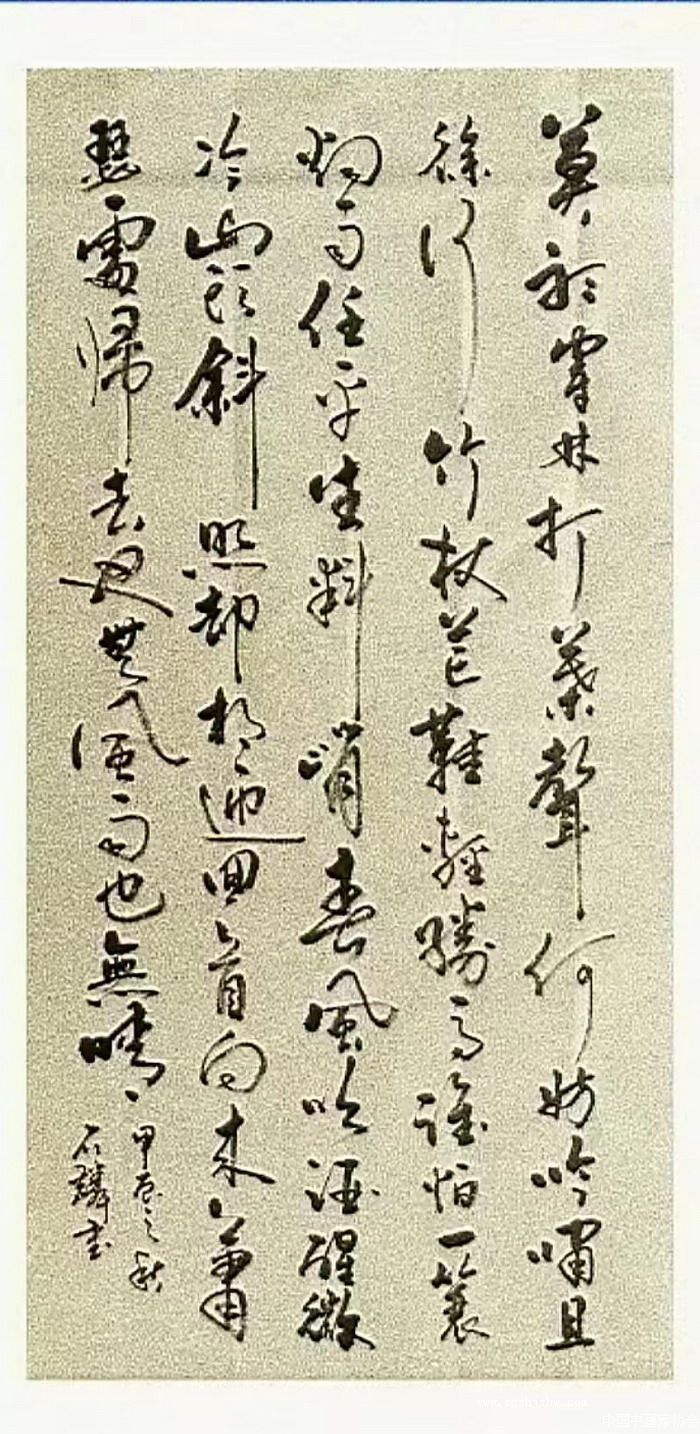 莫聽穿林打葉聲何妨吟嘯且
徐行竹杖芒鞋輕勝馬誰怕一蓑
烟雨任平生料峭春風吹酒醒微
冷山頭斜照却相迎回首向来蕭
瑟處歸去也無風雨也無晴
甲辰之秋
石麟書